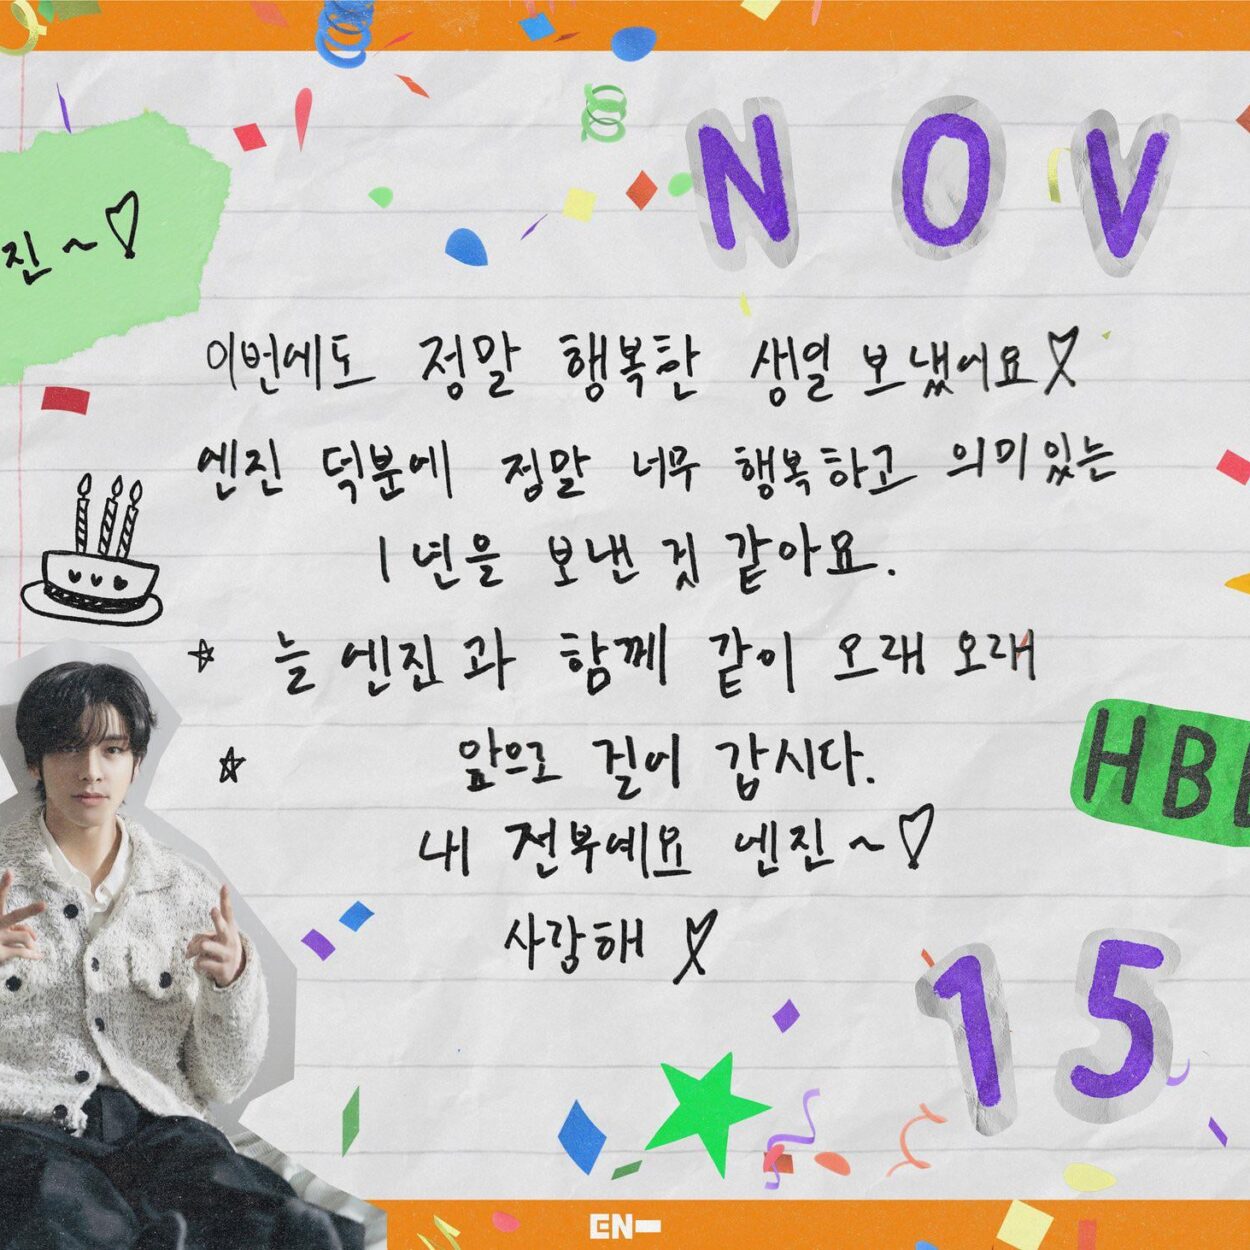 NOV
진~♡
이번에도 정말 행복한 생일 보냈어요♡
엔진 덕분에 정말 너무 행복하고 의미있는
1년을 보낸 것 같아요.
☆ 늘 엔진과 함께 같이 오래 오래
☆ 앞으로 걸어 갑시다.
HB
내 전부예요 엔진~♡
사랑해 ♡
15
EN-